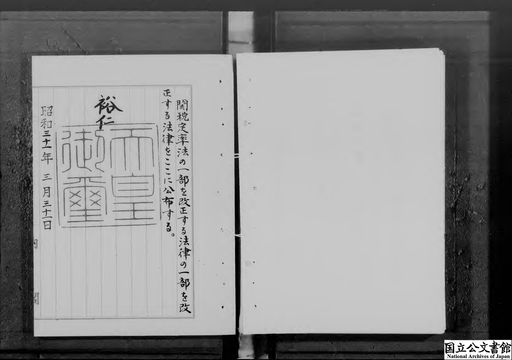 関税定率法の一部を改正する法律の一部を改
正する法律をここに公布する。
裕仁
天皇
御璽
昭和三十一年三月三十一日
国立公文書館
National Archives of Japan